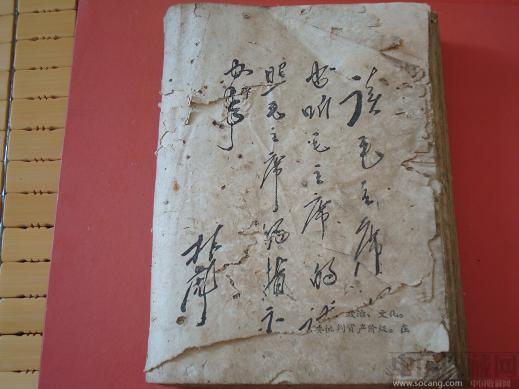 读毛主席
书听毛主席的话
照毛主席的指示
办事
林彪
政治、文化。
批判资产阶级。在
www.socang.com